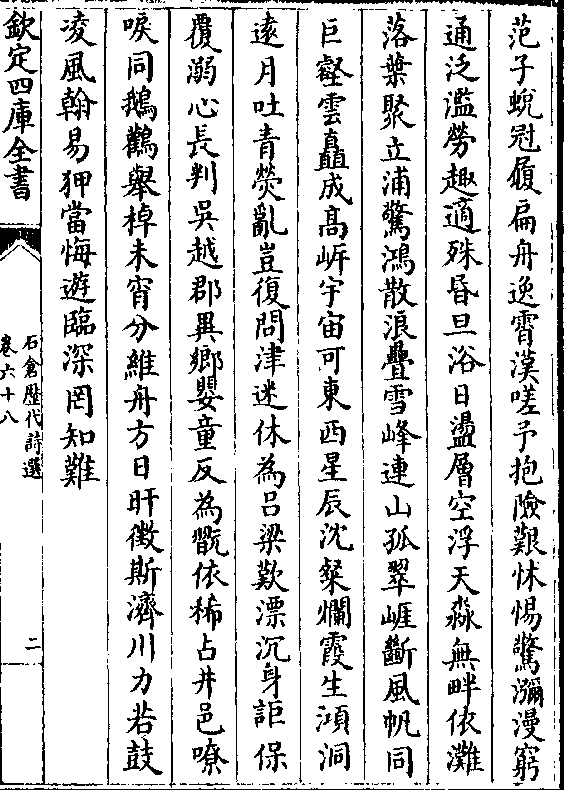 范子蛻冠履扁舟逸霄漢嗟予抱險艱怵惕驚瀰漫窮
通泛濫勞趣適殊昏旦浴日盪層空浮天淼無畔依灘
落葉聚立浦驚鴻散浪疊雪峰連山孤翠崕斷風帆同
巨壑雲矗成高㟁宇宙可東西星辰沈粲爛霞生澒洞
遠月吐青熒亂豈復問津迷休為呂梁歎漂沉身詎保
覆溺心長判吳越郡異鄉嬰童反為翫依稀占井邑嘹
唳同鵝鸛舉棹未宵分維舟方日旰徴斯濟川力若鼓
凌風翰易狎當悔遊臨深罔知難
欽定四庫全書
石倉歷代詩選
卷六十八
二